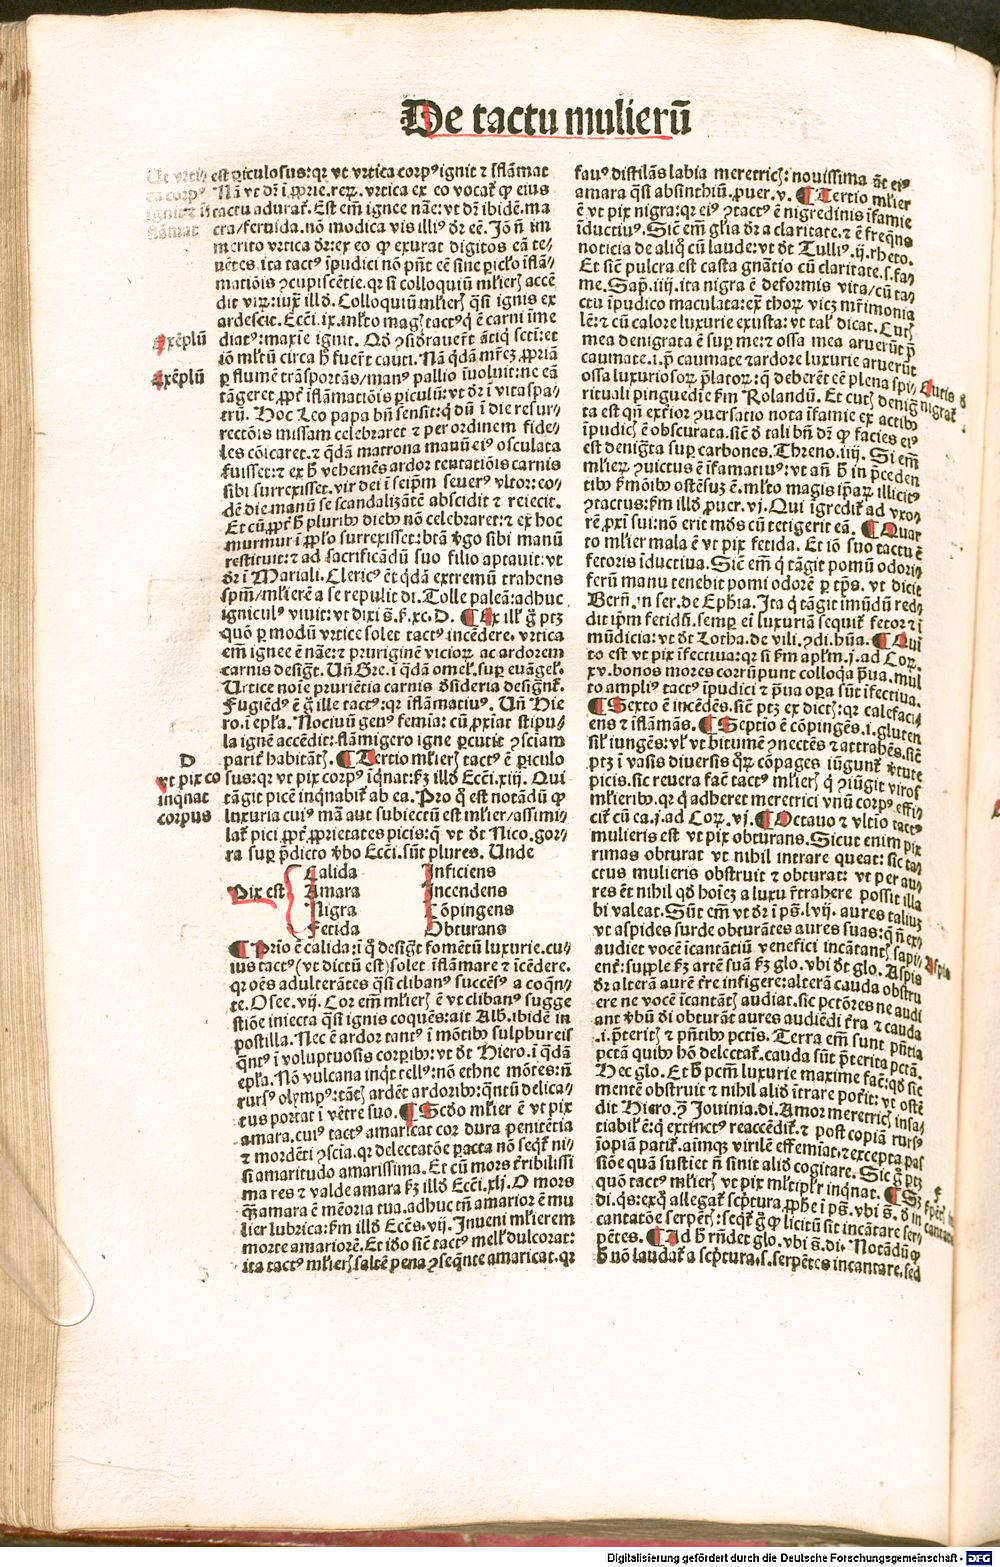 De tactu mulierū
Ut vrti⸗
ca corpꝰ
ignit ⁊ ī
flāmat
est ꝑiculosus: qꝛ vt vrtica corpꝰ ignit ⁊ īflāmat
Nā vt dꝛ ī ꝓprie. reꝝ. vrtica ex eo vocat᷑ ꝙ eius
tactu adurat᷑. Est em̄ ignee nāe: vt dꝛ ibidē. ma
cra/feruida. nō modica vis illiꝰ dꝛ eē. Jō ñ im
merito vrtica dꝛ: ex eo ꝙ exurat digitos eā te⸗
nētes. ita tactꝰ īpudici nō pn̄t eē sine ꝑicl’o īflā⸗
matiōis ꝯcupiscētie. qꝛ si colloquiū ml’ieꝝ accē
dit viꝝ: iux̄ illd̄. Colloquiū ml’ieꝝ q̄si ignis ex
ardescit. Ecc̄i. ix. ml’to magꝭ tactꝰ q̄ ē carni īme
Exēplū
diatꝰ: maxīe ignit. Qd̄ ꝯsid̄rauer̄t ātiq̇ sc̄ti: et
iō ml’tū circa h̄ fuer̄t cauti. Nā q̇dā mr̄eꝫ ꝓpriā
Exēplū
ꝑ flumē trāsportās/manꝰ pallio īuoluit: ne eā
tāgeret ꝓpt̄ īflamatiōis ꝑiculū: vt dꝛ ī vitaspa⸗
trū. Hoc Leo papa bn̄ sensit: q̇ dū ī die resur⸗
rectōis missam celebraret ⁊ per ordinem fide⸗
les cōicaret. ⁊ q̄dā matrona manū eiꝰ osculata
fuisset: ⁊ ex h̄ vehemēs ardor tentatiōis carnis
sibi surrexisset. vir dei ī seip̄m seuerꝰ vltor: eo⸗
dē die manū se scandalizātē abscidit ⁊ reiecit.
Et cū ꝓpt̄ h̄ pluribꝰ diebꝰ nō celebraret: ⁊ ex hoc
murmur ī ppl’o surrexisset: btā v̄go sibi manū
restituit: ⁊ ad sacrificādū suo filio aptauit: vt
dꝛ ī Mariali. Clericꝰ et̄ q̇dā extremū trahens
spm̄/ml’ierē a se repulit di. Tolle paleā: adhuc
igniculꝰ viuit: vt dixi s̄. ẜ. xc. D. ¶ Ex ill’ g̊ ptꝫ
quō ꝑ modū vrtice solet tactꝰ incēdere. vrtica
em̄ ignee ē nāe: ⁊ pruriginē vicioꝝ ac ardorem
carnis design̄t. Un̄ Gre. ī q̇dā omel’. suꝑ euāgel’.
Urtice noīe pruriētia carnis d̄sideria design̄t᷑.
Fugiēdꝰ ē g̊ ille tactꝰ: qꝛ īflamatiuꝰ. Un̄ Hie
ro. ī ep̄la. Nociuū genꝰ femīa: cū ꝓxīat stipu⸗
la ignē accēdit: flāmigero igne ꝑcutit ꝯsciam
D
vt pix co
inq̇nat
corpus
parit̄ habitātꝭ. ¶ Tertio ml’ierꝭ tactꝰ ē ꝑiculo
sus: qꝛ vt pix corpꝰ īq̇nat: ẜꝫ illd̄ Ecc̄i. xiij. Qui
tāgit picē inq̇nabit᷑ ab ea. Pro q̊ est notādū ꝙ
luxuria cuiꝰ mā aut subiectū est ml’ier/assimi⸗
lat᷑ pici ꝓpt̄ ꝓprietates picis: q̄ vt dt̄ Nico. gor⸗
ra suꝑ p̄dicto v̄bo Ecc̄i. sūt plures. Unde
Pix est
Calida
Amara
Nigra
Fetida
Inficiens
Incendens
Cōpingens
Obturans
¶ Prīo ē calida: ī q̊ design̄t᷑ fomētū luxurie. cu⸗
ius tactꝰ (vt dictū est) solet īflāmare ⁊ īcēdere.
qꝛ oēs adulterātes q̄si clibanꝰ succēsꝰ a coq̄n⸗
te. Osee. vij. Cor em̄ ml’ierꝭ ē vt clibanꝰ sugge
stiōe iniecta q̄si ignis coquēs: ait Alb. ibidē in
postilla. Nec ē ardor tantꝰ ī mōtibꝰ sulphureis
q̄ntꝰ ī voluptuosis corꝑibꝰ: vt dt̄ Hiero. ī q̇dā
ep̄la. Nō vulcana inq̇t tellꝰ: nō ethne mōtes: n̄
rursꝰ olympꝰ: tātꝭ ardēt ardoribꝰ: q̄ntū delica⸗
tus portat ī vētre suo. ¶ Scd̄o ml’ier ē vt pix
amara. cuiꝰ tactꝰ amaricat cor dura penitētia
⁊ mordēti ꝯscia. qꝛ delectatōe ꝑacta nō seq̇t᷑ ni⸗
si amaritudo amarissima. Et cū mors t̄ribilissi
ma res ⁊ valde amara ẜꝫ illd̄ Ecc̄i. xlj. O mors
q̄ꝫ amara ē mēoria tua. adhuc tn̄ amarior ē mu
lier lubrica: ẜm illd̄ Ecc̄s. vij. Jnueni ml’ierem
morte amariorē. Et id̄o sic̄ tactꝰ mell’ dulcorat:
ita tactꝰ ml’ierꝭ saltē pena ꝯseq̄nte amaricat. qꝛ
fauꝰ distillās labia meretricꝭ: nouissima āt eiꝰ
amara q̄si absinthiū. ꝓuer. v. ¶ Tertio ml’ier
ē vt pix nigra: qꝛ eiꝰ ꝯtactꝰ ē nigredinis īfamie
īductiuꝰ. Sic̄ em̄ gl’ia dꝛ a claritate. ⁊ ē freq̄ns
noticia de aliq̊ cū laude: vt dt̄ Tulliꝰ. ij. rheto.
Et sic̄ pulcra est casta gn̄atio cū claritate. s. fa⸗
me. Sap. iiij. ita nigra ē deformis vita/cū ta⸗
ctu īpudico maculata: ex̄ thorꝰ vicꝫ mr̄imonia
lē: ⁊ cū calore luxurie exusta: vt tal’ dicat. Cutꝭ
mea denigrata ē suꝑ me: ⁊ ossa mea aruerūt p̄
caumate. i. p̄ caumate ⁊ ardore luxurie aruerūt
Cutis d̄
nigrat᷑
ossa luxuriosoꝝ p̄latoꝝ: q̄ deberēt eē plena spi⸗
rituali pinguedīe ẜm Rolandū. Et cutꝭ denig̊
ta est qn̄ ext̄ior ꝯuersatio nota īfamie ex actibꝰ
īpudicꝭ ē obscurata. sic̄ d̄ tali bn̄ dꝛ ꝙ facies eiꝰ
est denigr̄ta suꝑ carbones. Threno. iiij. Si em̄
ml’ieꝝ ꝯuictus ē īfamatiuꝰ: vt an̄ h̄ in p̄ceden
tibꝰ ẜmōibꝰ ostēsuꝫ ē. ml’to magis ip̄aꝝ illicitꝰ
ꝯtactus: ẜm illd̄ ꝓuer. vj. Qui īgredit᷑ ad vxo⸗
rē ꝓxi sui: nō erit mūdꝰ cū tetigerit eā. ¶ Quar
to ml’ier mala ē vt pix fetida. Et iō suo tactu ē
fetoris īductiua. Sic̄ em̄ q̇ tāgit pomū odori⸗
ferū manu tenebit pomi odorē ꝑ tp̄s. vt dicit
Bern̄. in ser. de Eph̄ia. Jta q̇ tāgit īmūdū red⸗
dit ip̄m fetidū. semꝑ ei luxuriā sequit᷑ fetor ⁊ ī
mūdicia: vt dt̄ Lotha. de vili. ꝯdi. hūa. ¶ Qui
to est vt pix īfectiua: qꝛ si ẜm apl’m. j. ad Coꝝ.
xv. bonos mores corrūpunt colloq̇a p̄ua. mul
to ampliꝰ tactꝰ īpudici ⁊ p̄ua oꝑa sūt īfectiua.
¶ Sexto ē incēdēs. sic̄ ptꝫ ex dictꝭ: qꝛ calefaci⸗
ens ⁊ īflāmās. ¶ Septīo ē cōpingēs. i. gluten
sil’ iungēs: vl’ vt bitumē ꝯnectēs ⁊ attrahēs. sic̄
ptꝫ ī vasis diuersis qꝝ cōpages iūgunt᷑ v̄tute
picis. sic reuera fac̄ tactꝰ ml’ierꝭ q̇ ꝯiūgit viros
ml’ieribꝰ. qꝛ q̇ adheret meretrici vnū corpꝰ effi⸗
cit᷑ cū ea. j. ad Coꝝ. vj. ¶ Octauo ⁊ vl’tīo tactꝰ
mulieris est vt pix obturans. Sicut enim pix
rimas obturat vt nihil intrare queat: sic ta⸗
ctus mulieris obstruit ⁊ obturat: vt per au⸗
res et̄ nihil qd̄ hoīeꝫ a luxu r̄trahere possit illa
bi valeat. Sūt em̄ vt dꝛ ī ps̄. lvij. aures taliuꝫ
vt aspides surde obturātes aures suas: q̄ n̄ ex⸗
audiet vocē īcantātiū venefici incātantꝭ sapi⸗
Aspis
ent̄: supple ẜꝫ artē suā ẜꝫ glo. vbi dt̄ glo. Aspis
dꝛ alterā aurē t̄re infigere: alterā cauda obstru
ere ne vocē īcantātꝭ audiat. sic pctōres ne audi
ant v̄bū di obturāt aures audiēdi t̄ra ⁊ cauda
.i. p̄teritꝭ ⁊ pn̄tibꝰ pctis. Terra em̄ sunt pn̄tia
pctā quibꝰ hō delectat᷑. cauda sūt p̄terita pctā.
Hec glo. Et h̄ pcm̄ luxurie maxime fac̄: qd̄ sic
mentē obstruit ⁊ nihil aliō ītrare poſit: vt ostē
dit Hiero. ꝯ̄ Jouinia. di. Amor meretricꝭ insa⸗
tiabil’ ē: q̇ extinctꝰ reaccēdit᷑. ⁊ post copiā rursꝰ
īopiā patit᷑. aīmqꝫ virilē effemiat. ⁊ excepta pas
siōe quā sustīet n̄ sinit aliō cogitare. Sic g̊ ptꝫ
quō tactꝰ ml’ierꝭ vt pix ml’tipl’r inq̇nat. ¶ Sꝫ
di. q̄s: ex q̊ allegat᷑ sc̄ptura ꝓphe ī ps̄. vbi s̄. d̄ in
cantatōe serpētꝭ: seq̇t᷑ g̊ ꝙ licitū sit incātare ser⸗
pētes. ¶ Ad h̄ rn̄det glo. vbi s̄. di. Notādū ꝙ
h̄ nō laudat᷑ a sc̄ptura. s. serpētes incantare. sed